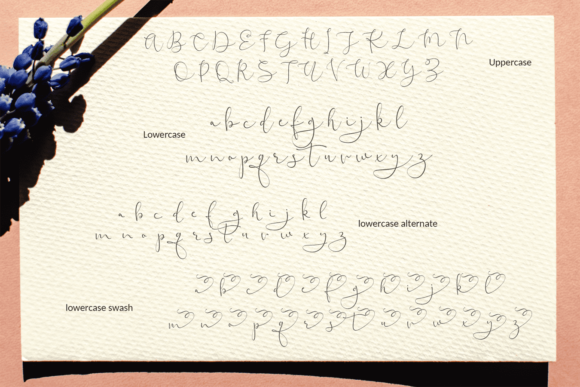 A B C D E F G H I J K L M N
O P Q R S T U V W X Y Z
Uppercase
Lowercase
a b c d e f g h i j k l
m n o p q r s t u v w x y z
a b c d e f g h i j k l
m n o p q r s t u v w x y z
lowercase alternate
lowercase swash
a b c d e f g h i j k l
m n o p q r s t u v w x y z